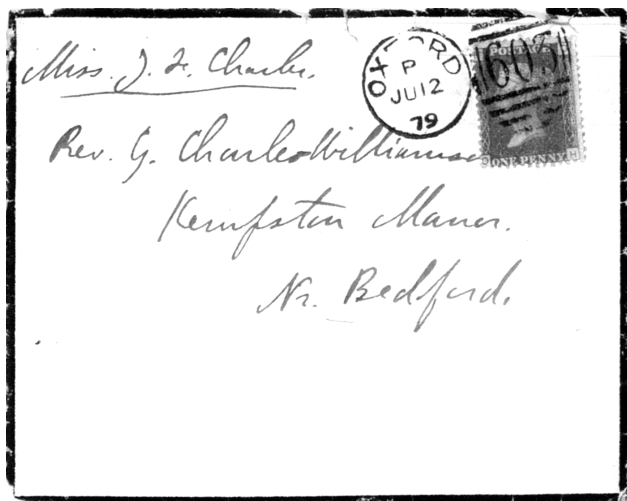 Miss. J. F. Charles.
OXFORD
P
JU 12
79
603
POSTAGE
ONE PENNY
Rev. G. Charles Williamson
Kempston Manor.
Nr. Bedford.